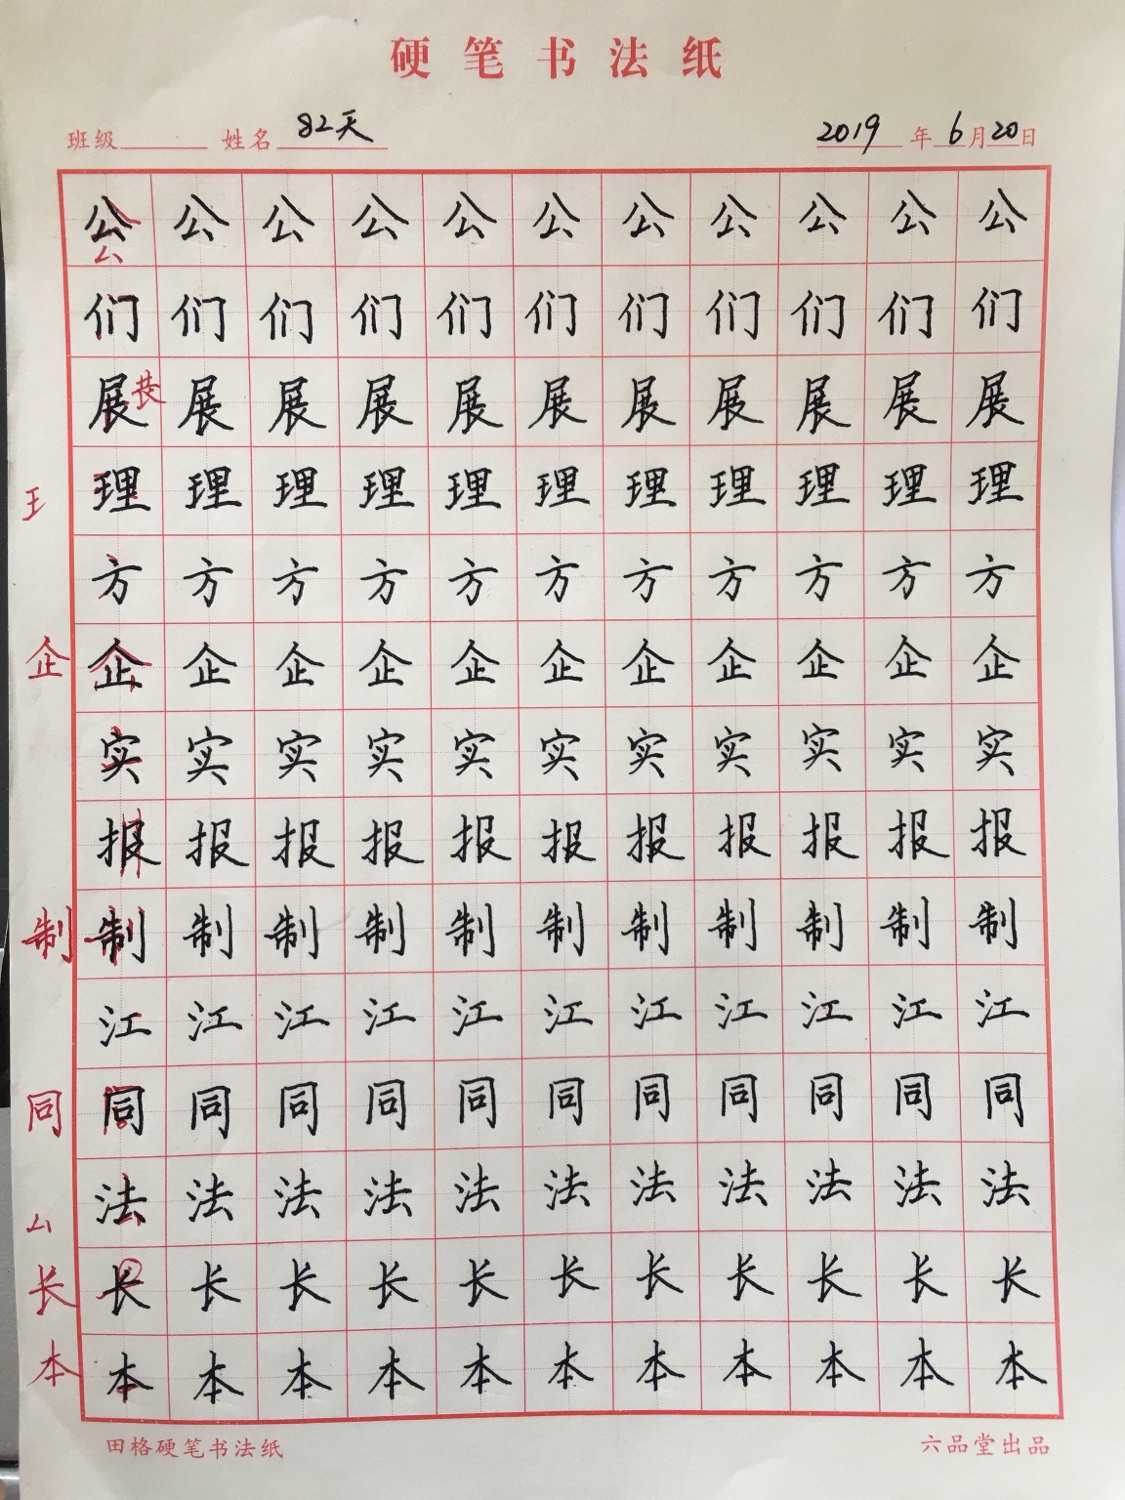 硬笔书法纸
班级 姓名 82天 2019年6月20日
公公公公公公公公公公公
们们们们们们们们们们们
展展展展展展展展展展展
理理理理理理理理理理理
方方方方方方方方方方方
企 企企企企企企企企企企企
实实实实实实实实实实实
报报报报报报报报报报报
制 制制制制制制制制制制制
江江江江江江江江江江江
同 同同同同同同同同同同同
法法法法法法法法法法法
长 长长长长长长长长长长长
本 本本本本本本本本本本本
田格硬笔书法纸 六品堂出品